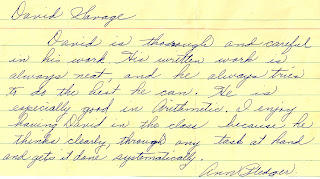 David Savage
David is thorough and careful
in his work. His written work is
always neat, and he always tries
to do the best he can. He is
especially good in Arithmetic. I enjoy
having David in the class because he
thinks clearly, through any task at hand
and gets it done systematically.
Ann Pledger